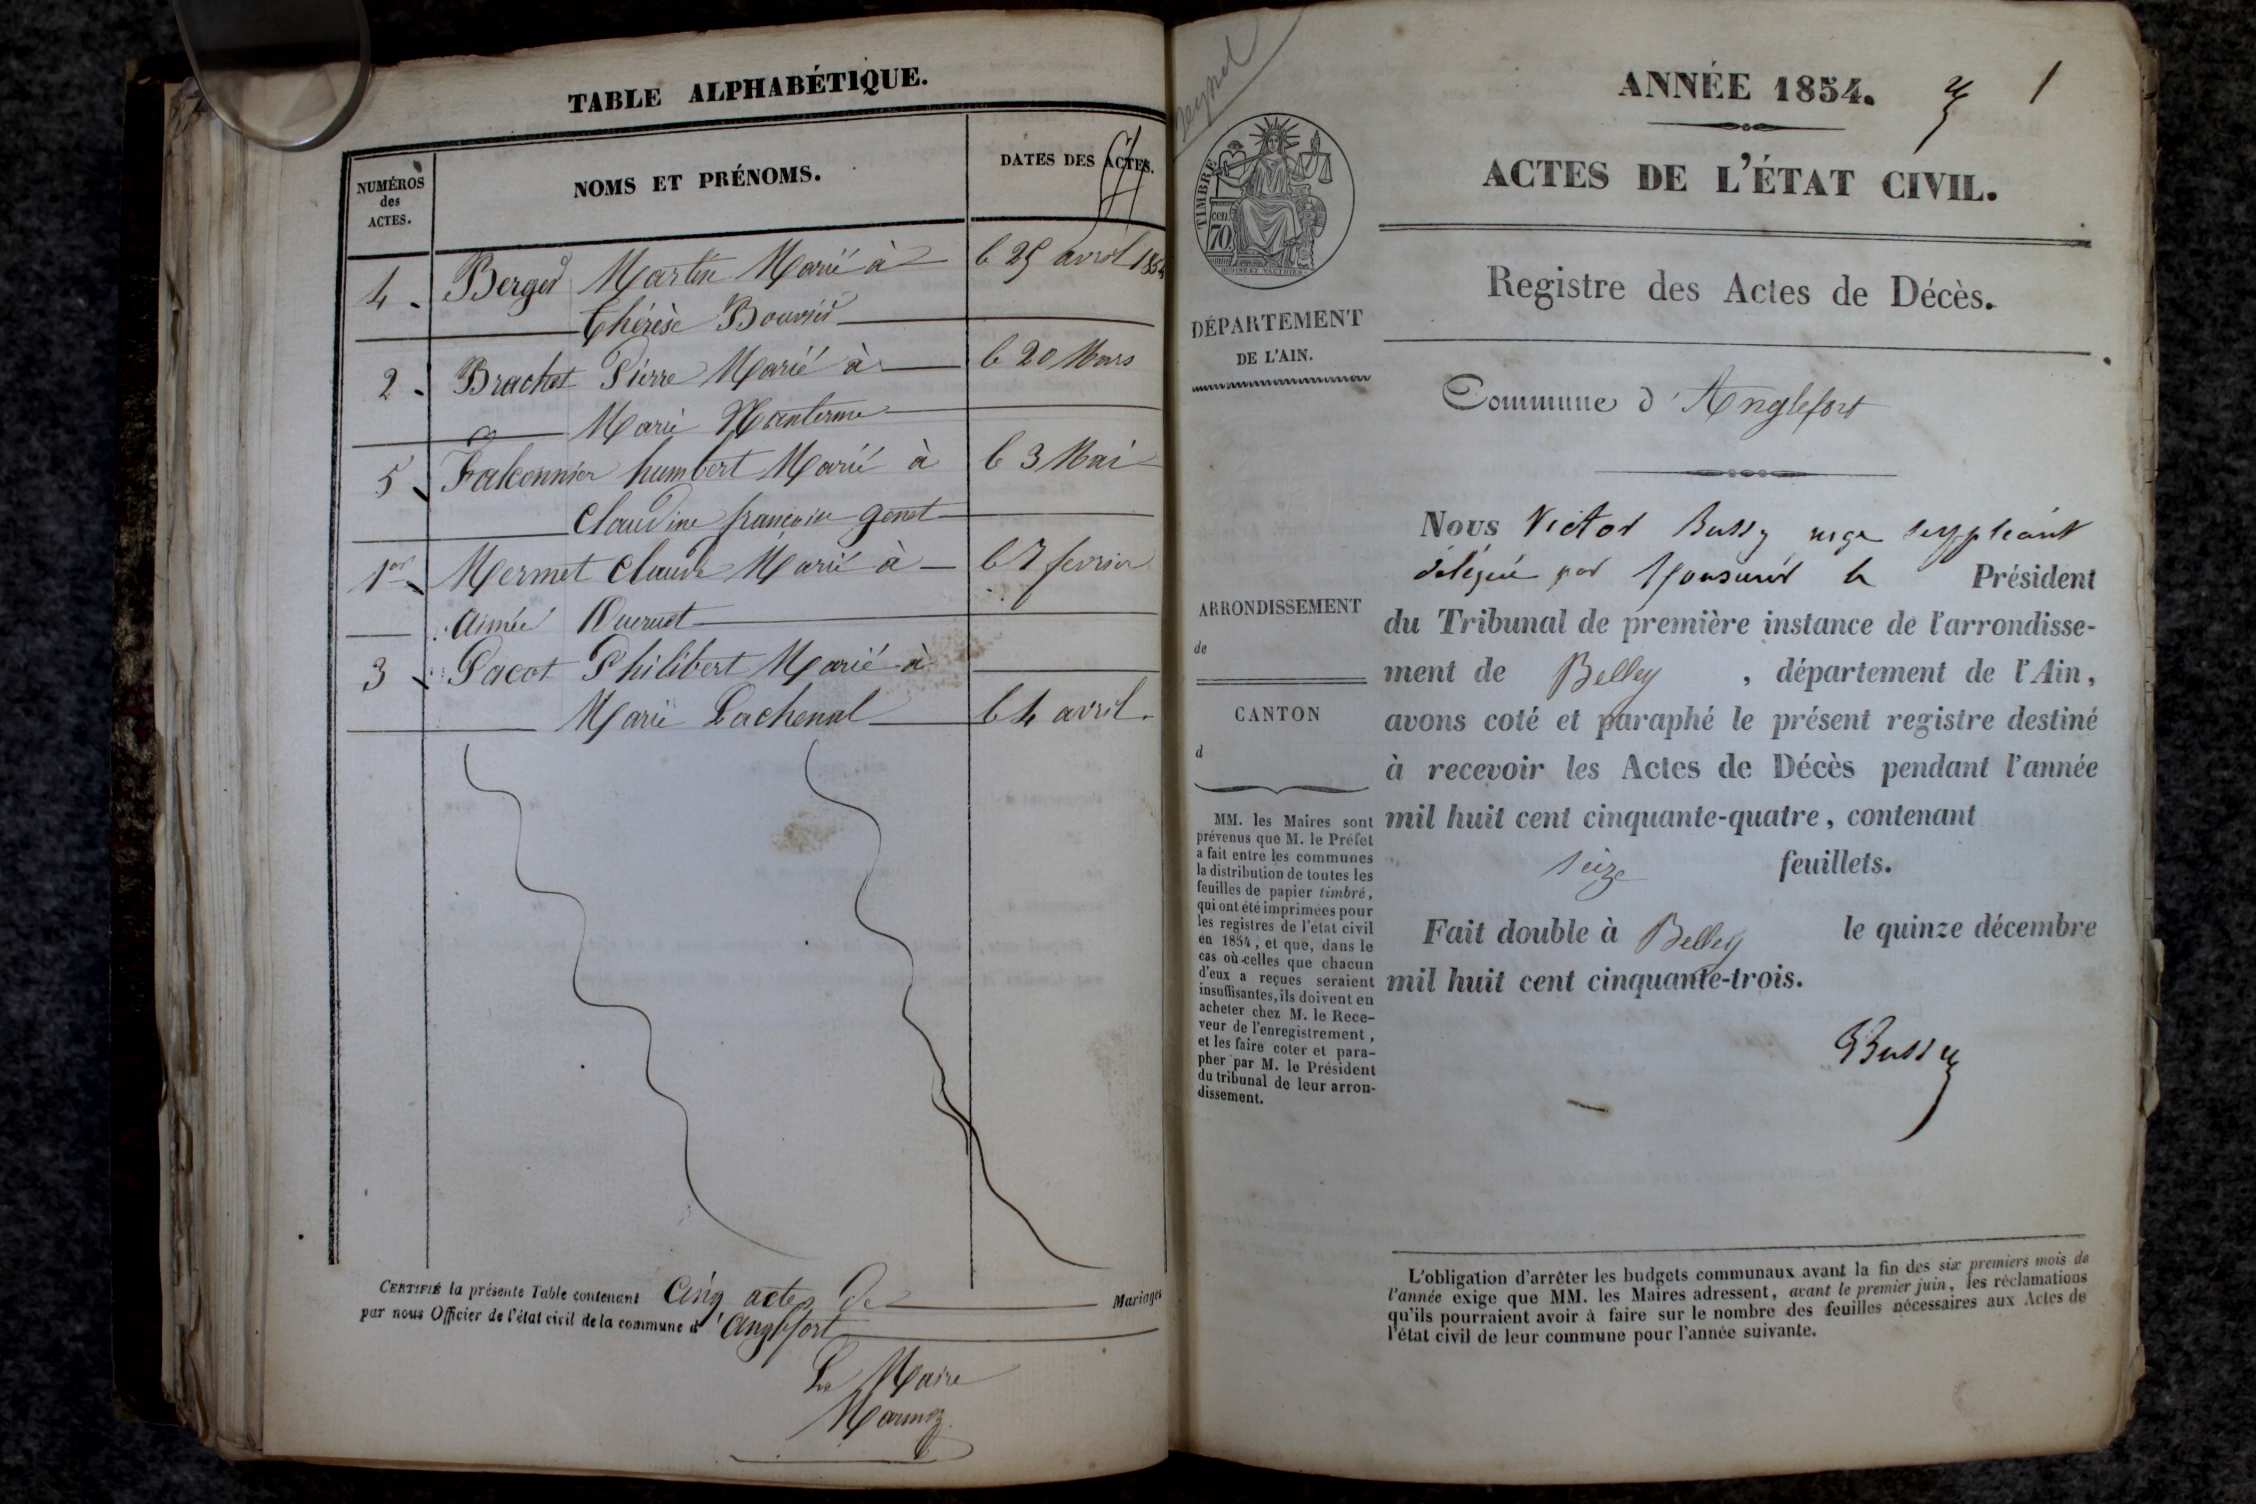 TABLE ALPHABÉTIQUE.
NUMÉROS
des
ACTES.
NOMS ET PRÉNOMS.
DATES DES ACTES.
4. Berger Martin Marié à le 25 avril 1854
Thérèse Bouvier
2. Brachet Pierre Marié à le 20 Mars
Marie
5 Falconnier humbert Marié à le 3 Mai
Claudine françoise genet
1er Mermet Claude Marié à le 7 fevrier
aimée
3 Pacot Philibert Marié à
Marie Lachenal le 4 avril.
CERTIFIÉ la présente Table contenant Cinq actes de Mariages
par nous Officier de l'état civil de la commune d'Anglefort
Le Maire
ANNÉE 1854.
1
ACTES DE L'ÉTAT CIVIL.
Registre des Actes de Décès.
TIMBRE
70 cen.
DÉPARTEMENT
DE L'AIN.
Commune d'Anglefort
Nous Victor Bussy juge suppléant
délégué par Monsieur le Président
du Tribunal de première instance de l'arrondisse-
ment de Belley, département de l'Ain,
avons coté et paraphé le présent registre destiné
à recevoir les Actes de Décès pendant l'année
mil huit cent cinquante-quatre, contenant
seize feuillets.
Fait double à Belley le quinze décembre
mil huit cent cinquante-trois.
Bussy
ARRONDISSEMENT
de
CANTON
d
MM. les Maires sont
prévenus que M. le Préfet
a fait entre les communes
la distribution de toutes les
feuilles de papier timbré,
qui ont été imprimées pour
les registres de l'état civil
en 1854, et que, dans le
cas où celles que chacun
d'eux a reçues seraient
insuffisantes, ils doivent en
acheter chez M. le Rece-
veur de l'enregistrement,
et les faire coter et para-
pher par M. le Président
du tribunal de leur arron-
dissement.
L'obligation d'arrêter les budgets communaux avant la fin des six premiers mois de
l'année exige que MM. les Maires adressent, avant le premier juin, les réclamations
qu'ils pourraient avoir à faire sur le nombre des feuilles nécessaires aux Actes de
l'état civil de leur commune pour l'année suivante.